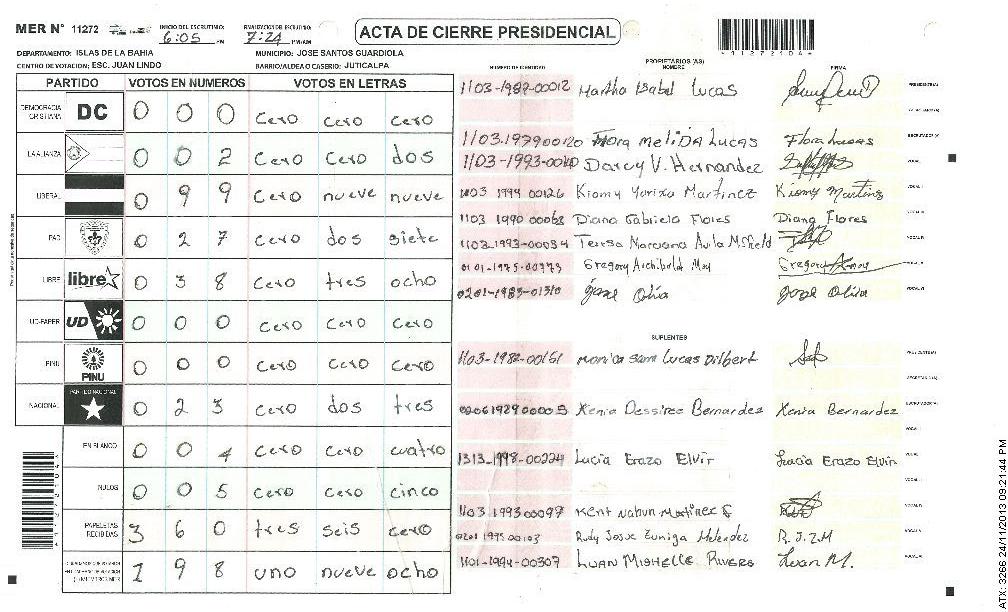 MER N° 11272 INICIO DEL ESCRUTINIO: 6:05 PM FINALIZACION DEL ESCRUTINIO: 7:24 PM/AM
ACTA DE CIERRE PRESIDENCIAL
*112721DA*
DEPARTAMENTO: ISLAS DE LA BAHIA MUNICIPIO: JOSE SANTOS GUARDIOLA
CENTRO DE VOTACION: ESC. JUAN LINDO BARRIO/ALDEA O CASERIO: JUTICALPA
PARTIDO VOTOS EN NUMEROS VOTOS EN LETRAS
DEMOCRACIA CRISTIANA DC 0 0 0 cero cero cero
LA ALIANZA 0 0 2 cero cero dos
LIBERAL 0 9 9 cero nueve nueve
PAC 0 2 7 cero dos siete
LIBRE libre 0 3 8 cero tres ocho
UD-FAPER UD 0 0 0 cero cero cero
PINU PINU 0 0 0 cero cero cero
NACIONAL PARTIDO NACIONAL 0 2 3 cero dos tres
EN BLANCO 0 0 4 cero cero cuatro
NULOS 0 0 5 cero cero cinco
PAPELETAS RECIBIDAS 3 6 0 tres seis cero
1 9 8 uno nueve ocho
NUMERO DE IDENTIDAD PROPIETARIOS (AS) NOMBRE FIRMA
1103-1987-00012 Martha Isabel Lucas PRESIDENTE(A)
SECRETARIO(A)
1103-1979-00120 Flora Melida Lucas Flora Lucas ESCRUTADOR(A)
Darcy V. Hernandez VOCAL I
1103 1994 00126 Kiomy Yorixa Martinez Kiomy Martins VOCAL II
1103 1990 00068 Diana Gabriela Flores Diana Flores VOCAL III
1103-1993-00034 Teresa Avila VOCAL IV
Gregory Archibold May VOCAL V
0201-1983-01310 Jose Oliva Jose Oliva VOCAL VI
SUPLENTES
1103-1982-00151 Monica Sara Lucas Dilbert PRESIDENTE(A)
SECRETARIO(A)
Xenia Dessiree Bernardez Xenia Bernardez ESCRUTADOR(A)
VOCAL I
1313-1998-00224 Lucia Erazo Elvir Lucia Erazo Elvir VOCAL II
VOCAL III
1103 1993 00097 Kent Nahun Martinez VOCAL IV
Rudy Josue Zuniga Melendez R.J.Z.M VOCAL V
1101-1994-00307 LUAN MISHELLE RIVERS Luan M. VOCAL VI
ATX: 3266 24/11/2013 09:21:44 PM